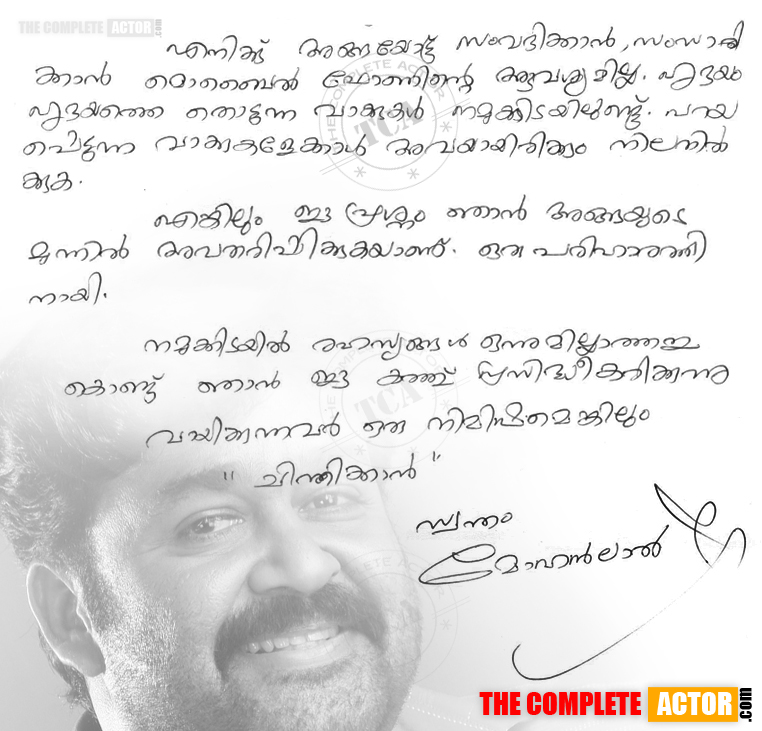 THE COMPLETE ACTOR.com
എനിക്ക് അങ്ങയോട്ട് സംവദിക്കാൻ, സംസാരി
ക്കാൻ മൊബൈൽ ഫോണിന്റെ ആവശ്യമില്ല. ഹൃദയം
ഹൃദയത്തെ തൊടുന്ന വാക്കുകൾ നമുക്കിടയിലുണ്ട്. പറയ
പ്പെടുന്ന വാക്കുകളേക്കാൾ അവയായിരിക്കും നിലനിൽ
ക്കുക.
എങ്കിലും ഈ പ്രശ്നം ഞാൻ അങ്ങയുടെ
മുന്നിൽ അവതരിപ്പിക്കുകയാണ്. ഒരു പരിഹാരത്തി
നായി.
നമുക്കിടയിൽ രഹസ്യങ്ങൾ ഒന്നുമില്ലാത്തതു
കൊണ്ട് ഞാൻ ഈ കത്ത് പ്രസിദ്ധീകരിക്കുന്നു
വായിക്കുന്നവർ ഒരു നിമിഷമെങ്കിലും
"ചിന്തിക്കാൻ"
സ്വന്തം
മോഹൻലാൽ
THE COMPLETE ACTOR.com